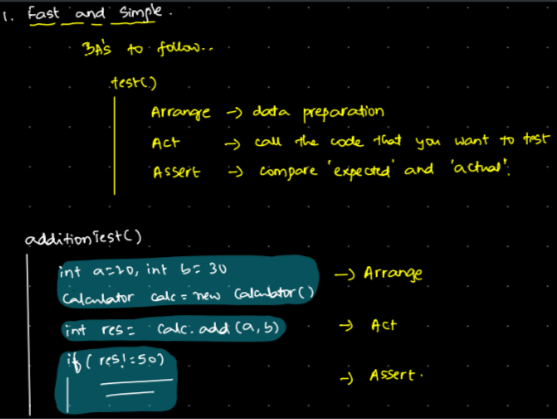 1. Fast and Simple.
3A's to follow..
test()
Arrange -> data preparation
Act -> call the code that you want to test
Assert -> compare 'expected' and 'actual'.
additionTest()
int a=20, int b= 30
Calculator calc = new Calculator() -> Arrange
int res = calc.add (a, b) -> Act
if ( res!=50)
-> Assert.